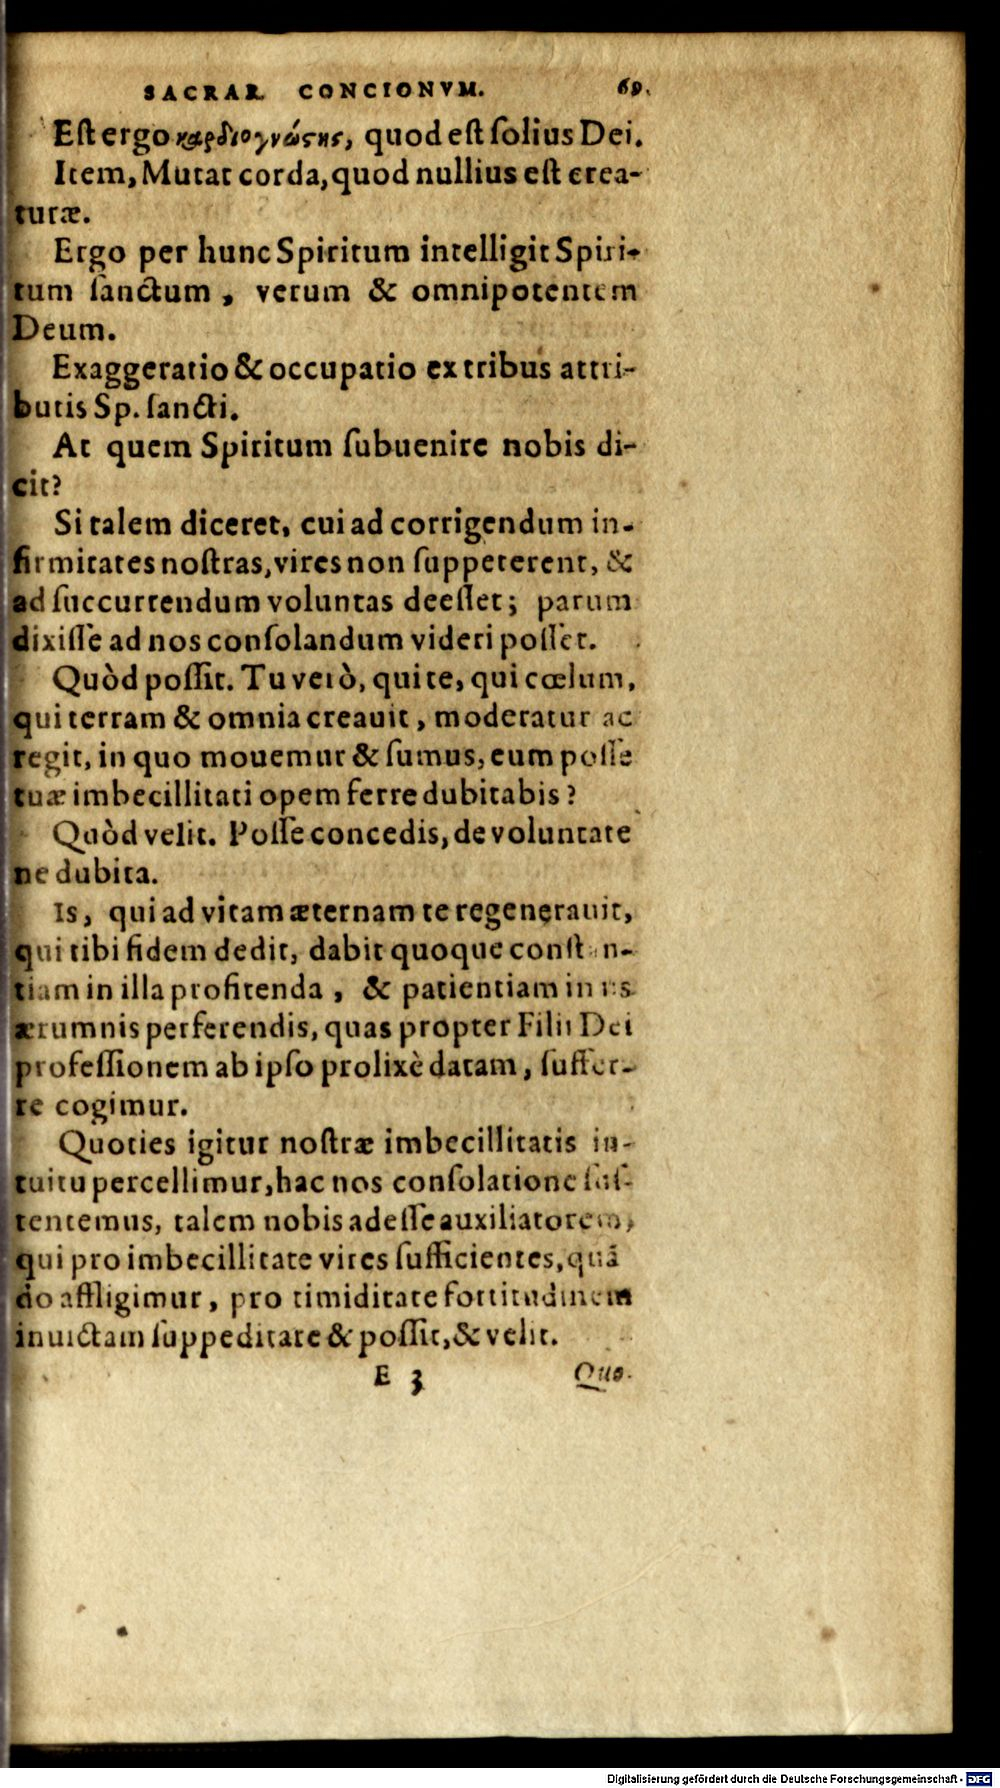 SACRAR. CONCIONVM. 69.
Est ergo καρδιογνώςης, quod est solius Dei.
Item, Mutat corda, quod nullius est crea-
turæ.
Ergo per hunc Spiritum intelligit Spiri-
tum sanctum, verum & omnipotentem
Deum.
Exaggeratio & occupatio ex tribus attri-
butis Sp. sancti.
At quem Spiritum subuenire nobis di-
cit?
Si talem diceret, cui ad corrigendum in-
firmitates nostras, vires non suppeterent, &
ad succurrendum voluntas deesset; parum
dixisse ad nos consolandum videri posset.
Quòd possit. Tu verò, qui te, qui cœlum,
qui terram & omnia creauit, moderatur ac
regit, in quo mouemur & sumus, eum posse
tuæ imbecillitati opem ferre dubitabis?
Quòd velit. Posse concedis, de voluntate
ne dubita.
Is, qui ad vitam æternam te regenerauit,
qui tibi fidem dedit, dabit quoque constan-
tiam in illa profitenda, & patientiam in iis
ærumnis perferendis, quas propter Filii Dei
professionem ab ipso prolixè datam, suffer-
re cogimur.
Quoties igitur nostræ imbecillitatis in-
tuitu percellimur, hac nos consolatione sus-
tentemus, talem nobis adesse auxiliatorem,
qui pro imbecillitate vires sufficientes, quā
do affligimur, pro timiditate fortitudinem
inuictam suppeditare & possit, & velit.
E 3 Quo-
Digitalisierung gefördert durch die Deutsche Forschungsgemeinschaft - DFG